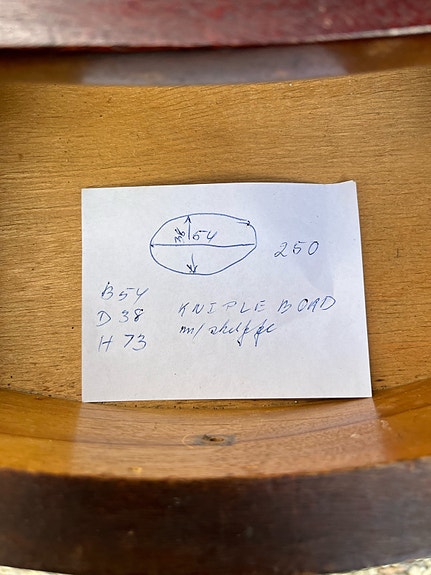 38
54
250
B 54
D 38
H 73
KNIPLE BORD
m/ skuffe